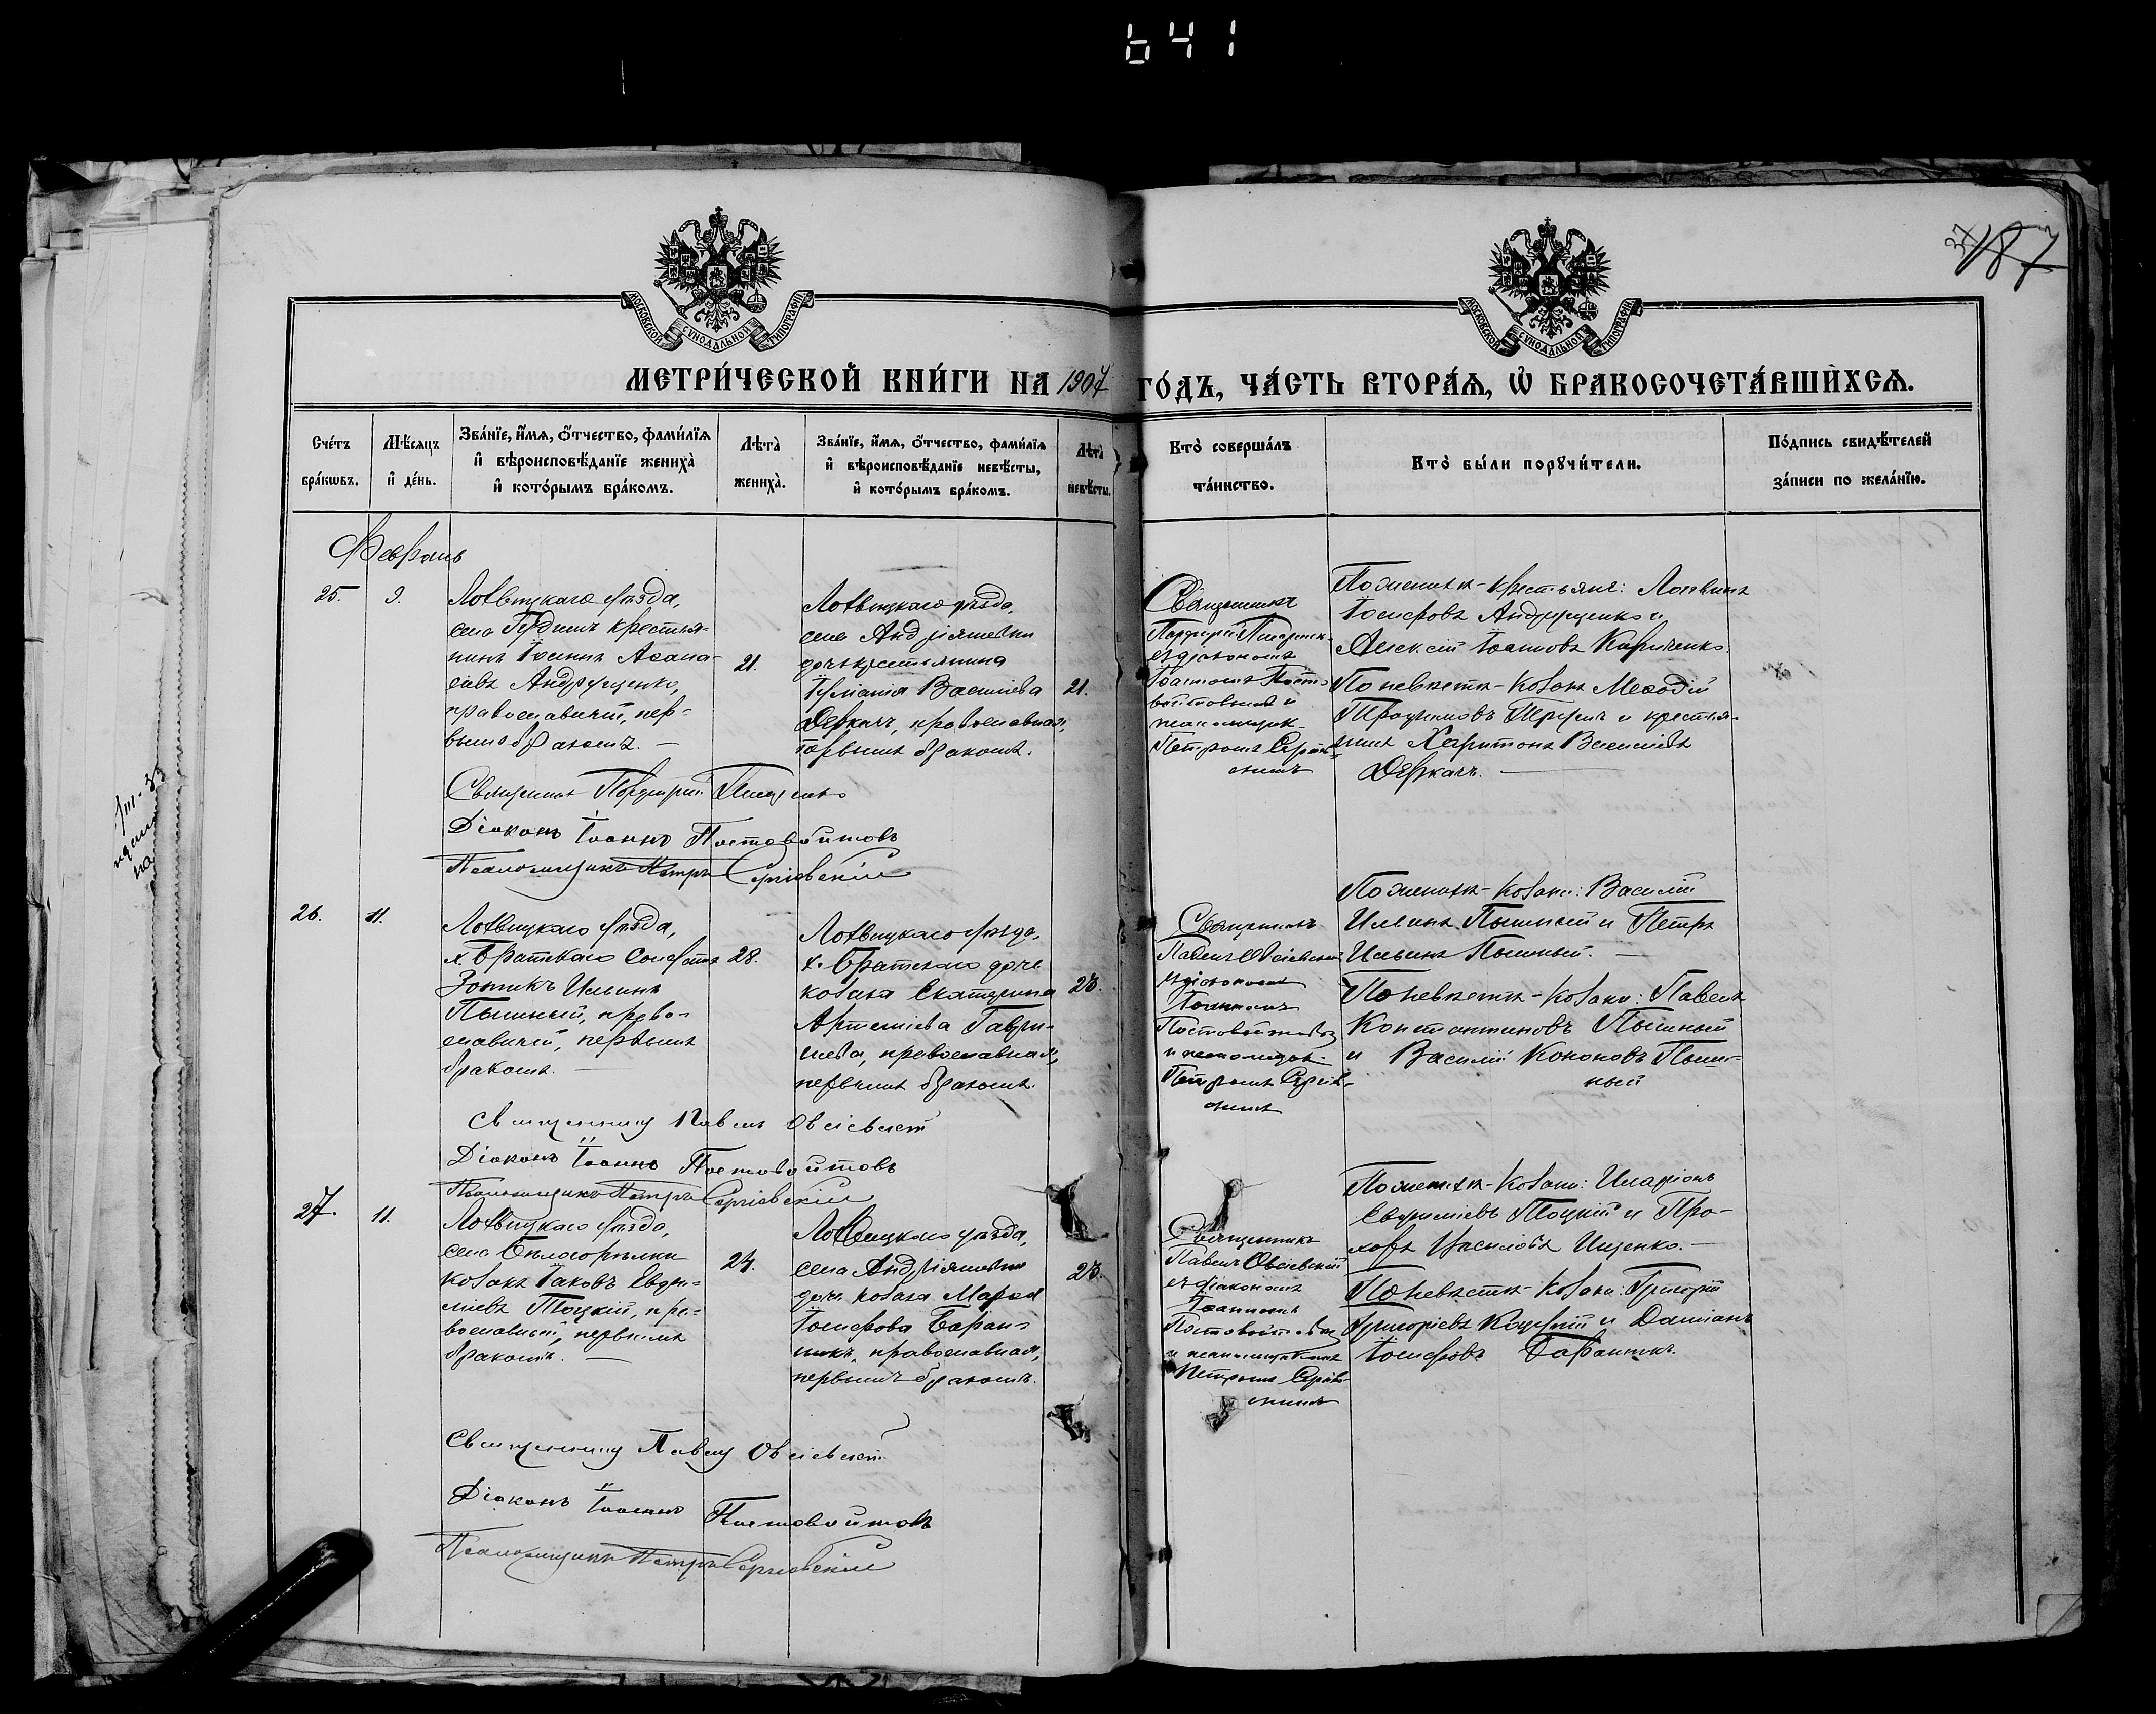 641
187
МОСКОВСКОЙ СУНОДАЛЬНОЙ ТИПОГРАФІИ
МОСКОВСКОЙ СУНОДАЛЬНОЙ ТИПОГРАФІИ
МЕТРИ́ЧЕСКОЙ КНИ́ГИ НА 1907 ГО́ДЪ, ЧА́СТЬ ВТОРА́Ѧ, Ѽ БРАКОСОЧЕТА́ВШИХСѦ.
Сче́тъ бра́кѡвъ.
Мѣ́сяцъ и҆ де́нь.
Зва́нїе, и҆́мѧ, о҆́тчество, фами́лїѧ
и҆ вѣроисповѣ́данїе жениха̀
и҆ кото́рымъ бра́комъ.
Лѣта̀ жениха̀.
Зва́нїе, и҆́мѧ, о҆́тчество, фами́лїѧ
и҆ вѣроисповѣ́данїе невѣ́сты,
и҆ кото́рымъ бра́комъ.
Лѣта̀ невѣ́сты.
Кто̀ соверша́лъ
та́инство.
Кто̀ бы́ли порꙋчи́тели.
По́дпись свидѣ́телей
за́писи по жела́нїю.
Февраль
25.
9.
Лохвицкаго уѣзда,
села крестья-
нинъ Іоаннъ Аѳана-
сіевъ Андрущенко,
православный, пер-
вымъ бракомъ.
21.
Лохвицкаго уѣзда,
села Андріяшевки
дочь крестьянина
Іуліанія Васильева
Деркачъ, православная,
первымъ бракомъ.
21.
Священникъ
Порфирій
съ діакономъ
Іоанномъ Посто-
войтовымъ и
псаломщик.
Петромъ Сергіев-
скимъ
По женихѣ - крестьяне:
Іосифовъ Андрущенко и
Алексій Іоанновъ Кириченко.
По невѣстѣ - козакъ Меѳодій
Трофимовъ и крестья-
нинъ Харитонъ Васильевъ
Деркачъ.
Священникъ Порфирій
Діаконъ Іоаннъ Постовойтовъ
Псаломщикъ Петръ Сергіевскій
26.
11.
Лохвицкаго уѣзда,
х. Братскаго
Зотикъ Ильинъ
Пышный, право-
славный, первымъ
бракомъ.
28.
Лохвицкаго уѣзда,
х. Братскаго дочь
козака Екатерина
Артеміева Гаври-
шева, православная,
первымъ бракомъ.
23.
Священникъ
Павелъ Овсіевскій
съ діакономъ
Іоанномъ
Постовойтовым
и псаломщик.
Петромъ Сергіев-
скимъ
По женихѣ - козаки: Василій
Ильинъ Пышный и Петръ
Ильинъ Пышный.
По невѣстѣ - козаки: Павелъ
Константиновъ Пышный
и Василій Кононовъ Пыш-
ный
Священникъ Павелъ Овсіевскій
Діаконъ Іоаннъ Постовойтовъ
Псаломщикъ Петръ Сергіевскій
27.
11.
Лохвицкаго уѣзда,
села Бѣлогорѣлки
козакъ Іаковъ Евфи-
міевъ Тоцкій, пра-
вославный, первымъ
бракомъ.
24.
Лохвицкаго уѣзда,
села Андріяшевки
дочь козака Марѳа
Іосифова Баран-
никъ, православная,
первымъ бракомъ.
23.
Священникъ
Павелъ Овсіевскій
съ діакономъ
Іоанномъ
Постовойтовым
и псаломщикомъ
Петромъ Сергіев-
скимъ
По женихѣ - козаки: Иларіонъ
Евфиміевъ Тоцкій и Про-
хоръ Ищенко.
По невѣстѣ - козаки: Григорій
Григоріевъ и Даміанъ
Іосифовъ Баранникъ.
Священникъ Павелъ Овсіевскій
Діаконъ Іоаннъ Постовойтовъ
Псаломщикъ Петръ Сергіевскій